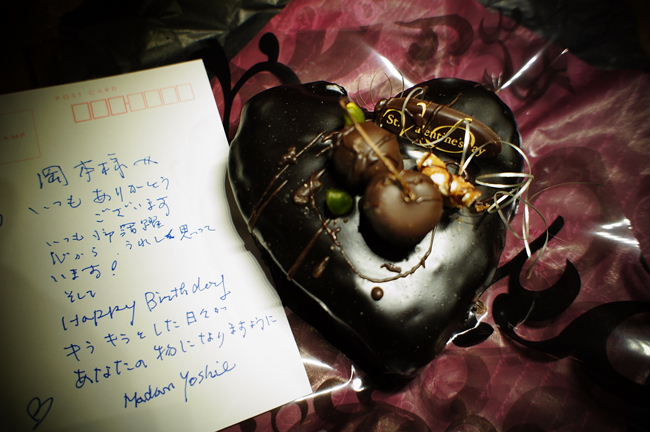 POST CARD
STAMP
岡本様へ
いつもありがとう
ございます
いつも御活躍
心から うれしく思って
います!
そして
Happy Birthday
キラキラとした日々が
あなたの物になりますように
Madam Yoshie
St. Valentine's Day